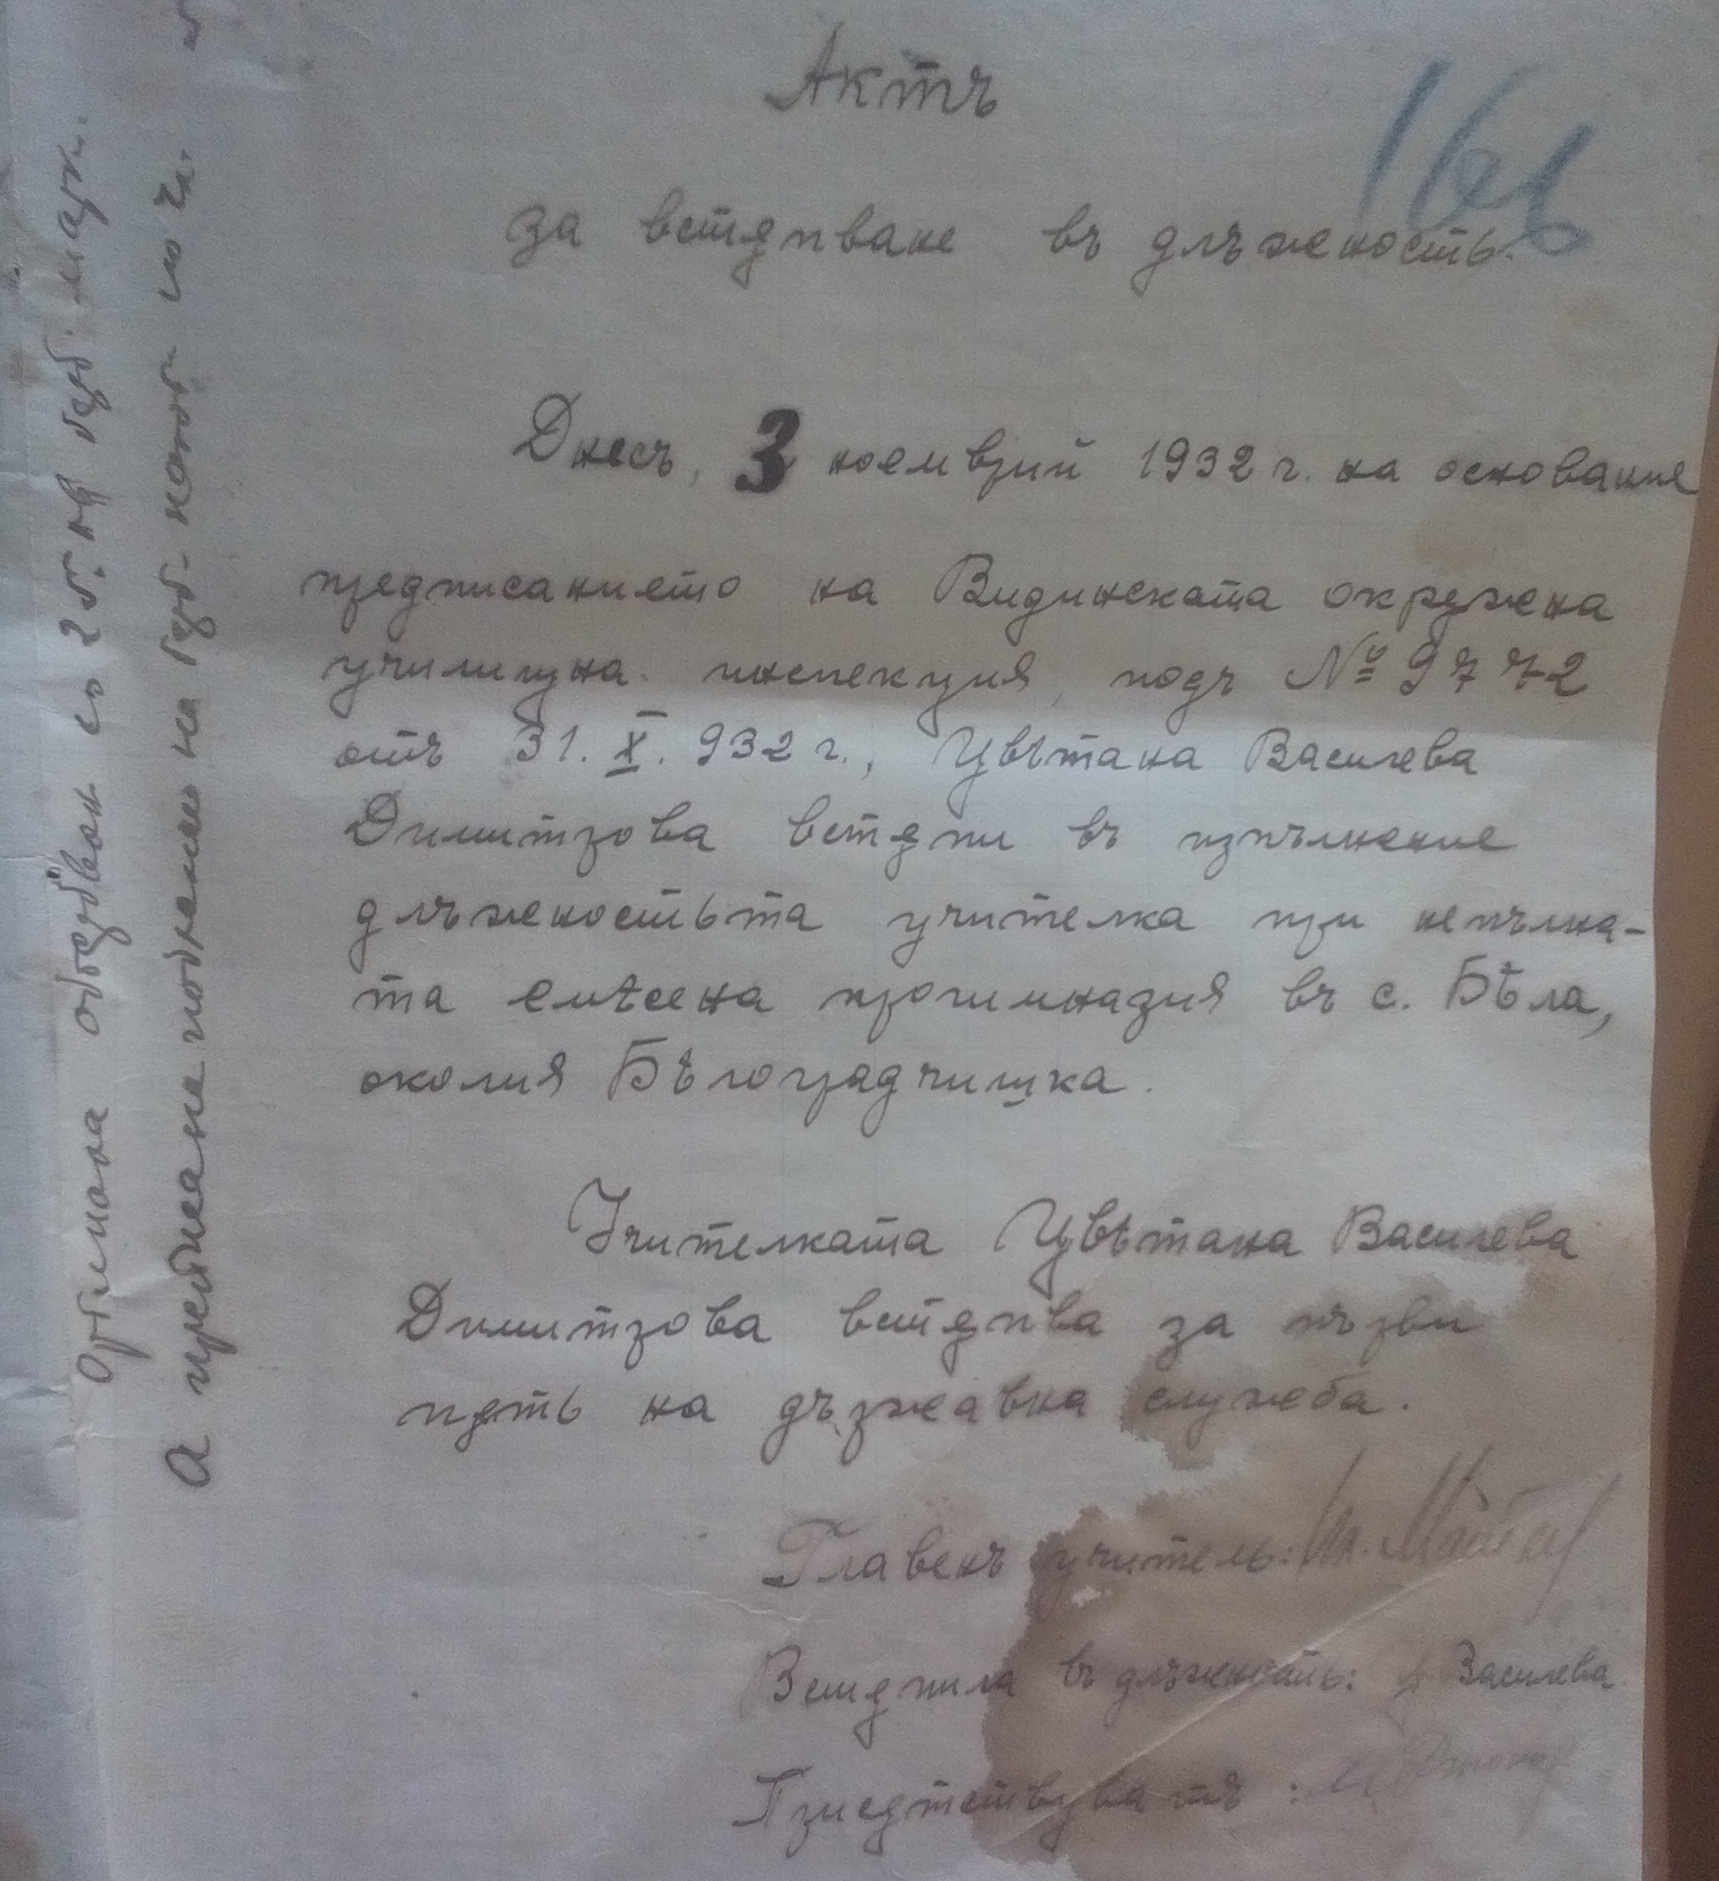 Актъ
за встѫпване въ длъжность.
Днесъ, 3 ноемврий 1932 г. на основание
предписанието на Видинската окрѫжна
училищна инспекция, подъ № 9772
отъ 31.X.932 г., Цвѣтана Василева
Димитрова встѫпи въ изпълнение
длъжностьта учителка при непълна-
та смѣсена прогимназия въ с. Бѣла,
околия Бѣлоградчишка.
Учителката Цвѣтана Василева
Димитрова встѫпва за първи
пѫть на държавна служба.
Главенъ учитель:
Встѫпила въ длъжность: Ц Василева
Присѫтствувалъ:
Оригинала обгербван съ 2б. лв герб. марк.
а преписа не подлежи на герб.